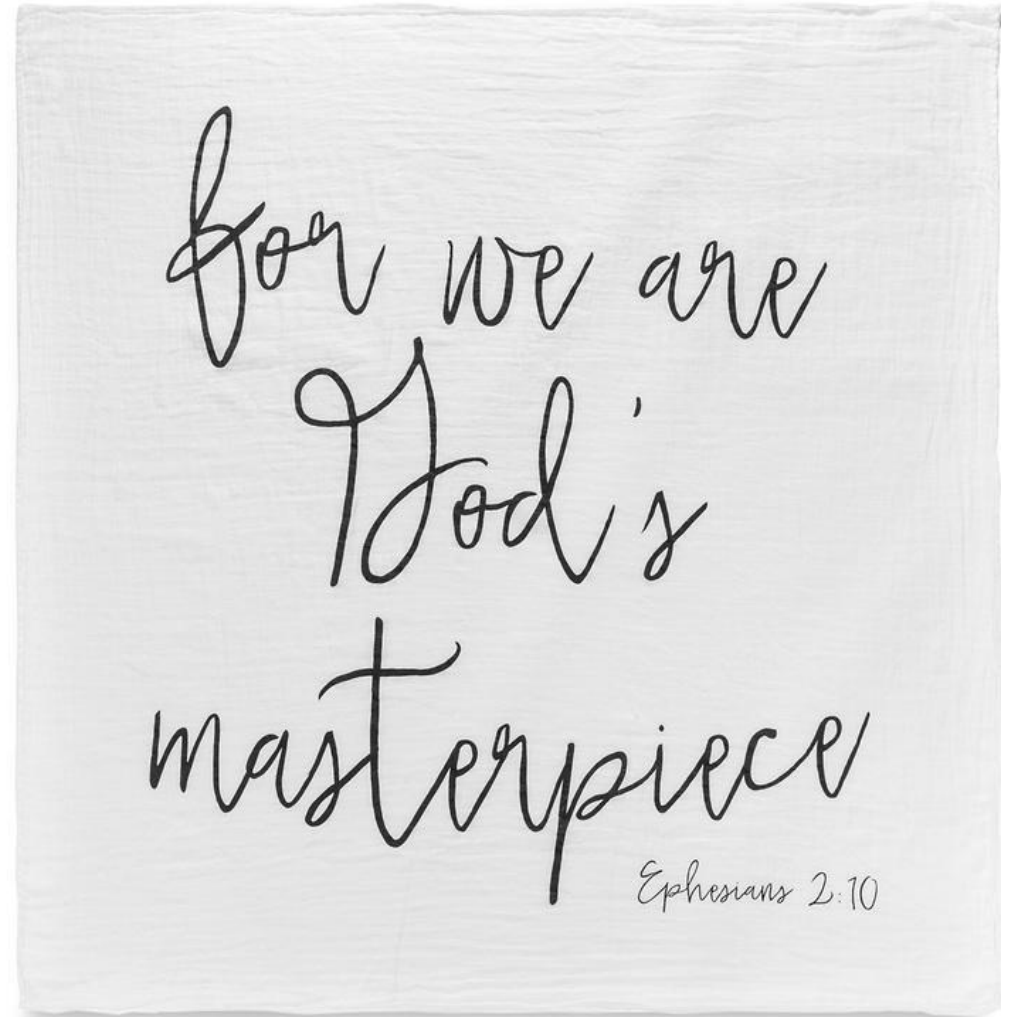 for we are
God's
masterpiece
Ephesians 2:10